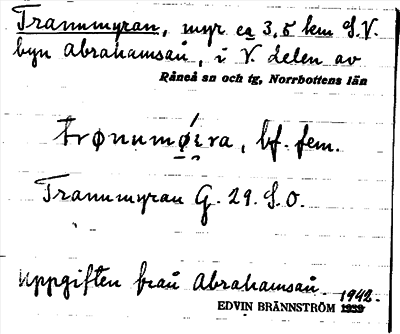 Tranumyran, myr ca 3,5 km S.V.
byn Abrahamsån, i V. delen av
Råneå sn och tg, Norrbottens län
trønumǿ̱ɪ̯ra, bf. fem.
Tranumyran G. 29. S.O.
Uppgiften från Abrahamsån. 1942.
EDVIN BRÄNNSTRÖM 1939